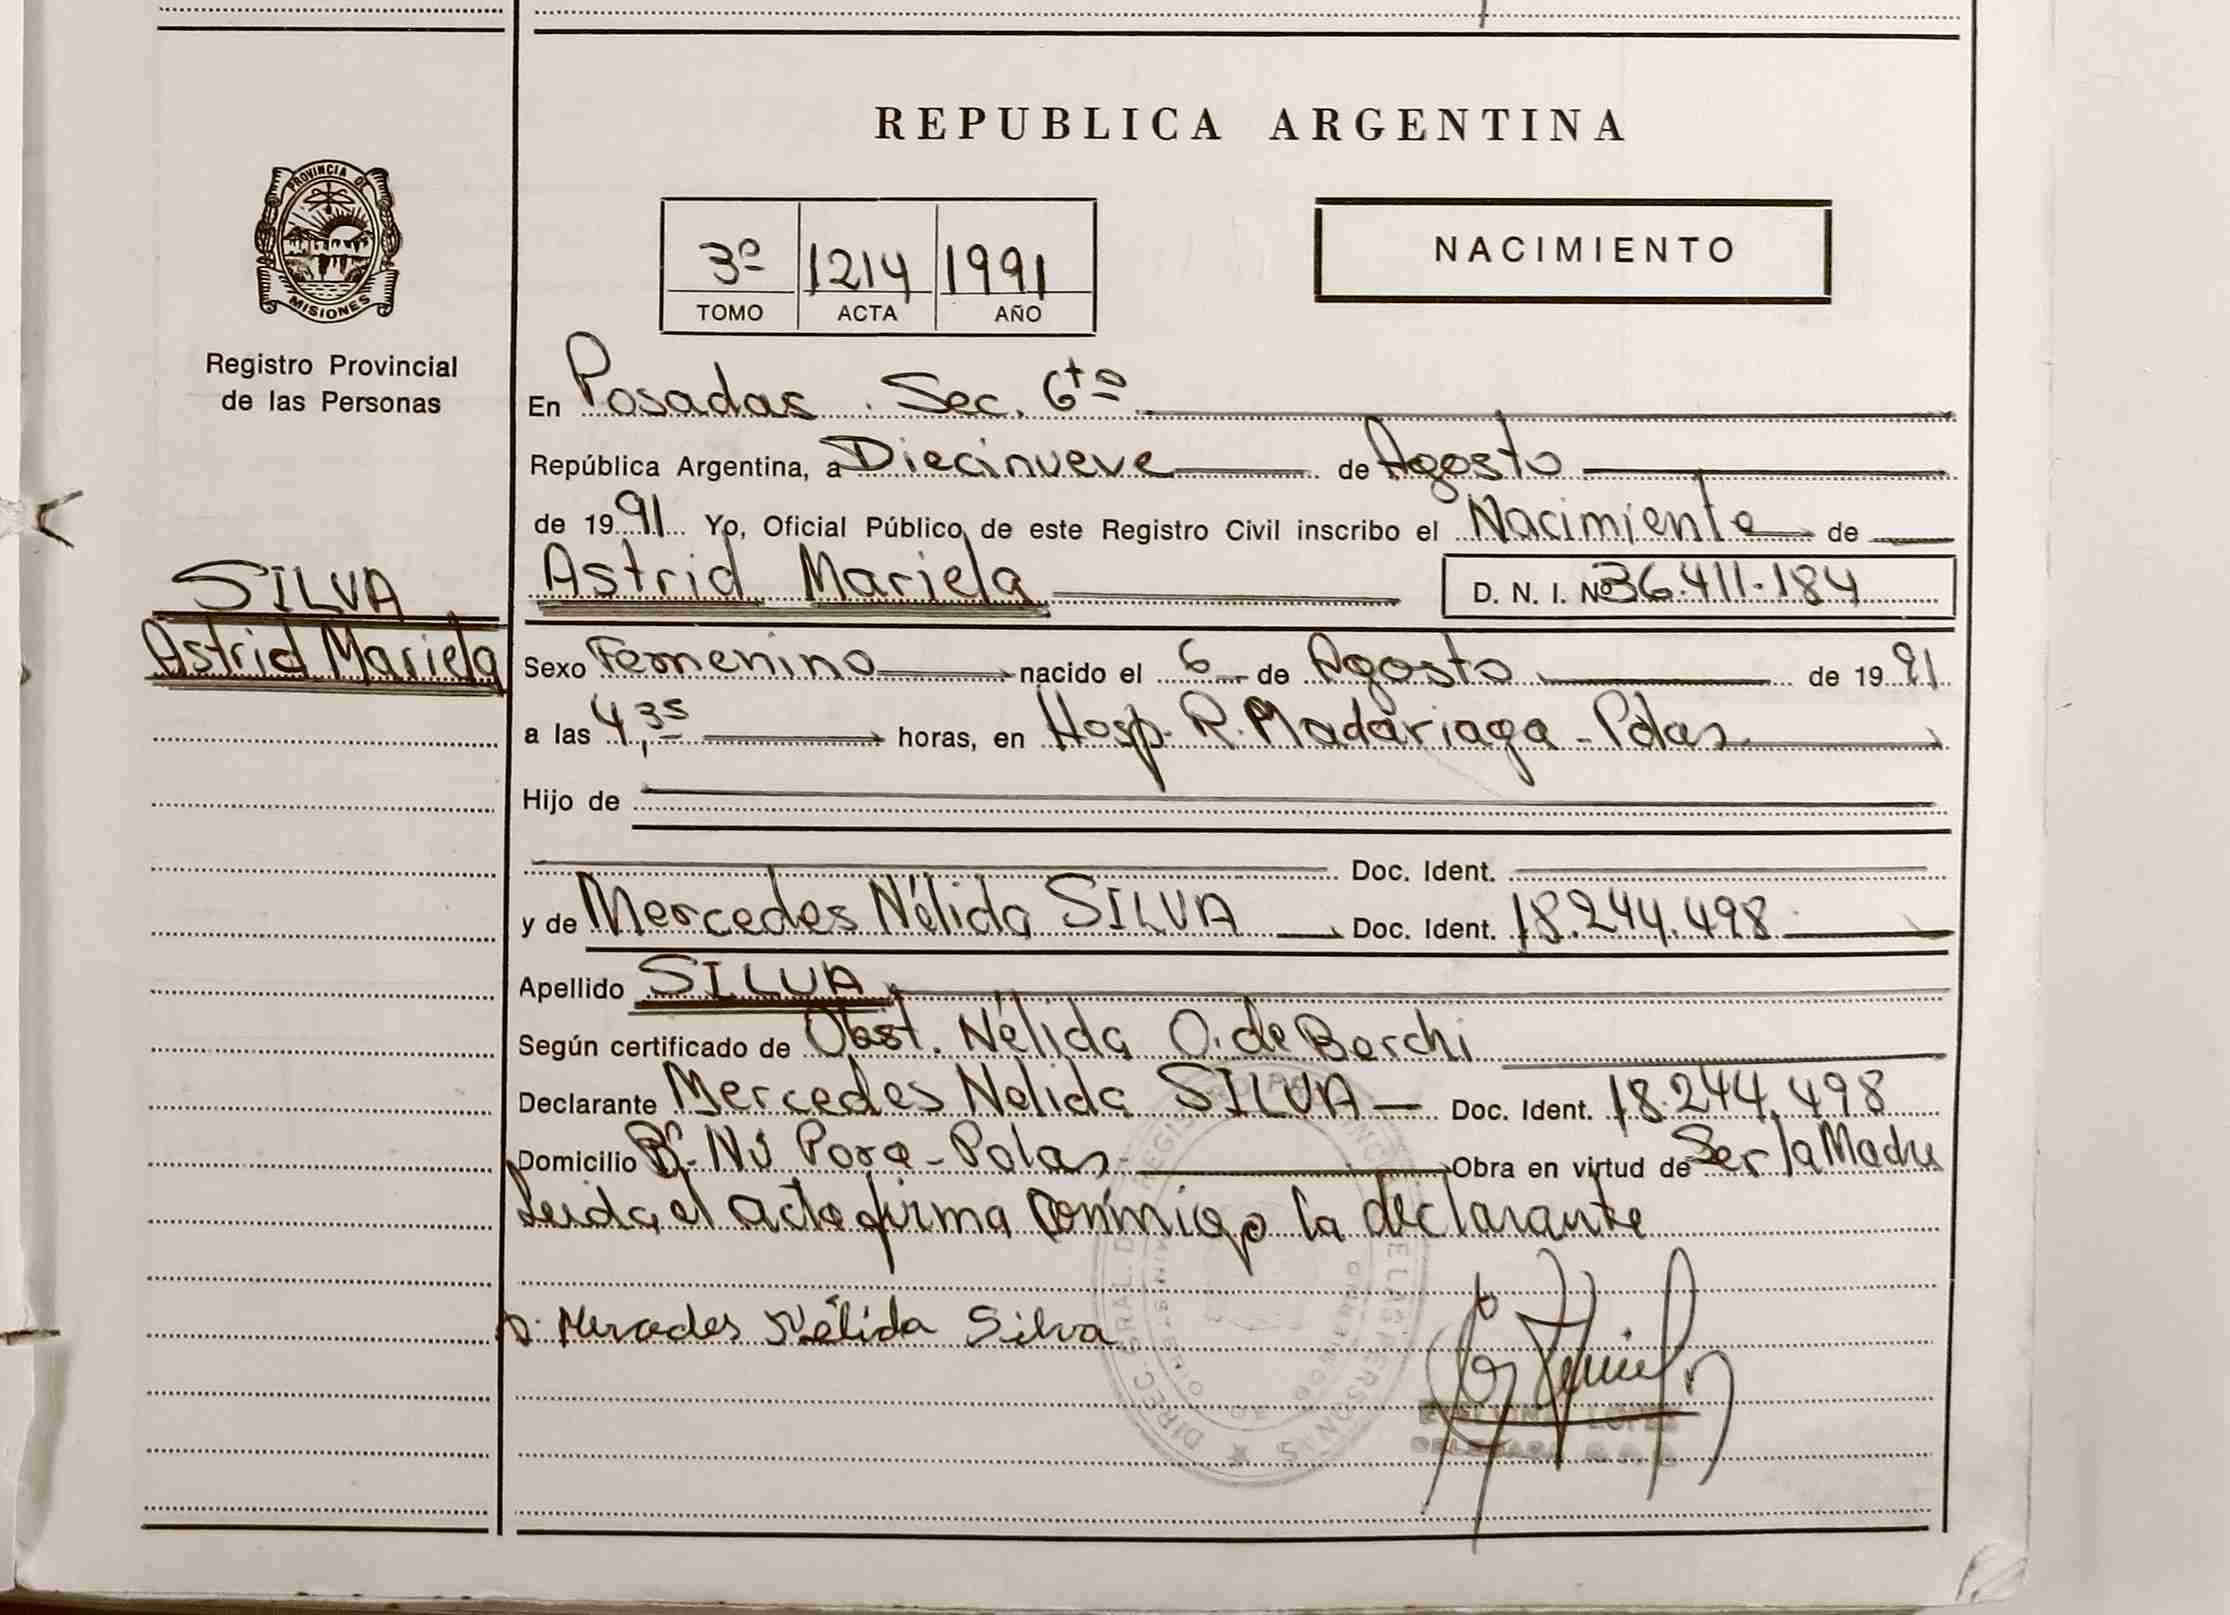 REPUBLICA ARGENTINA
PROVINCIA DE
MISIONES
Registro Provincial
de las Personas
NACIMIENTO
3º 1214 1991
TOMO ACTA AÑO
En Posadas. Sec. 6ta
República Argentina, a Diecinueve de Agosto
de 1991 Yo, Oficial Público de este Registro Civil inscribo el Nacimiento de
SILVA
Astrid Mariela
Astrid Mariela D. N. I. Nº 36.411.184
Sexo Femenino nacido el 6 de Agosto de 1991
a las 4,35 horas, en Hosp. R. Madariaga - Pdas
Hijo de
Doc. Ident.
y de Mercedes Nélida SILVA Doc. Ident. 18.244.498
Apellido SILVA
Según certificado de Obst. Nélida O. de Borchi
Declarante Mercedes Nelida SILVA Doc. Ident. 18.244.498
Domicilio Bº Ñú Pora - Pdas Obra en virtud de Ser la Madre
Leida el acta firma conmigo la declarante
Mercedes Nélida Silva
DIREC. GRAL. DE REGISTRO PROVINCIAL DE LAS PERSONAS
MINISTERIO DE GOBIERNO
LOPEZ
DELEGADA